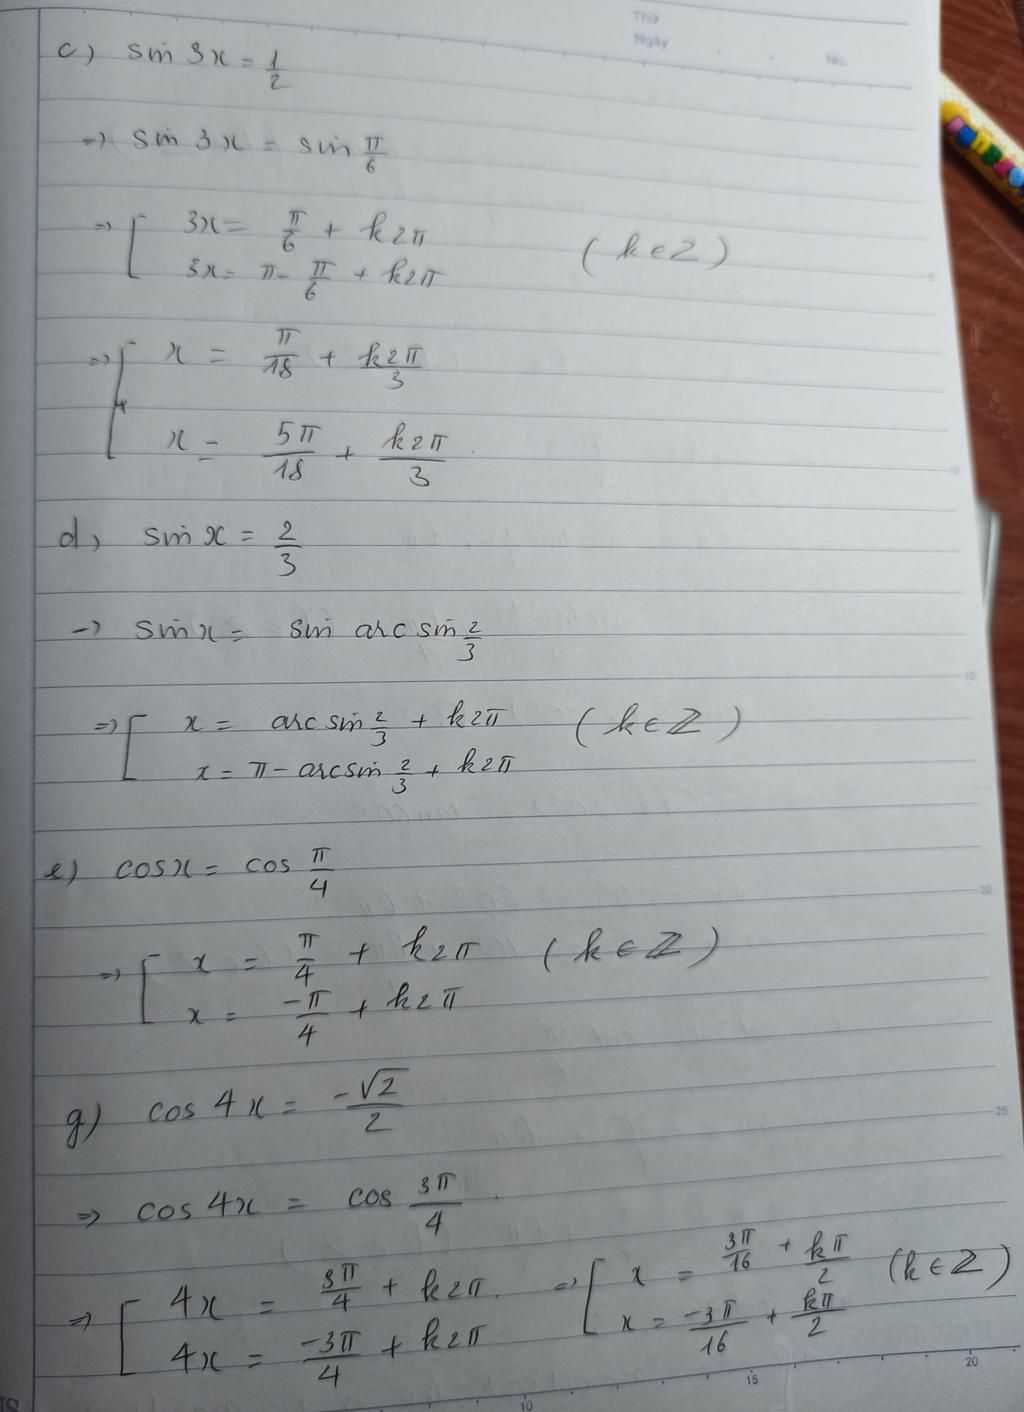 Thứ
Ngày
No.
c) sin 3x = 1/2
=> sin 3x = sin π/6
=> [ 3x = π/6 + k2π (k ∈ Z)
3x = π - π/6 + k2π
=> [ x = π/18 + k2π/3
x = 5π/18 + k2π/3
d, sin x = 2/3
-> sin x = sin arc sin 2/3
=> [ x = arc sin 2/3 + k2π (k ∈ ℤ)
x = π - arcsin 2/3 + k2π
e) cos x = cos π/4
=> [ x = π/4 + k2π (k ∈ ℤ)
x = -π/4 + k2π
g) cos 4x = -√2/2
=> cos 4x = cos 3π/4
=> [ 4x = 3π/4 + k2π. => [ x = 3π/16 + kπ/2 (k ∈ ℤ)
4x = -3π/4 + k2π x = -3π/16 + kπ/2
5
10
15
20
25
10
15
20